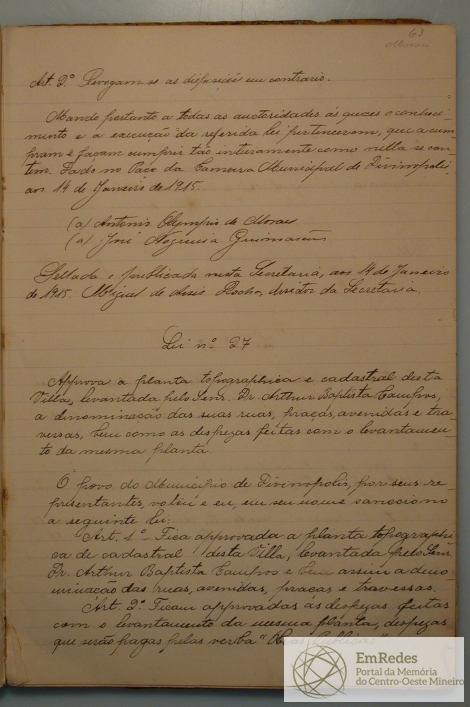 63
Moraes
Art. 2º Revogam-se as disposições em contrario.
Mando portanto a todas as autoridades ás quaes o conheci-
mento e a execução da referida lei pertencerem, que a cum-
pram e façam cumprir tão inteiramente como nella se con-
tem. Dado no Paço da Camara Municipal de Divinopolis,
aos 14 de Janeiro de 1915.
(a) Antonio Olympio de Moraes
(a) José Nogueira Guimarães
Sellada e publicada nesta Secretaria, aos 14 de Janeiro
de 1915. Miguel de Assis Rocha, director da Secretaria.
Lei nº 27
Approva a planta topographica e cadastral desta
Villa, levantada pelo Senr. Dr. Arthur Baptista Campos,
a dinominação das suas ruas, praças, avenidas e tra-
vessas, bem como as despezas feitas com o levantamen-
to da mesma planta.
O povo do Municipio de Divinopolis, por seus re-
presentantes, votou e eu, em seu nome sancciono
a seguinte lei:
Art. 1º - Fica approvada a planta topographi-
ca de cadastral desta Villa, levantada pelo Senr.
Dr. Arthur Baptista Campos e bem assim a deno-
minação das ruas, avenidas, praças e travessas.
Art. 2º Ficam approvadas as despezas feitas
com o levantamento da mesma planta, despezas
que serão pagas pelas verba "Obras Publicas"
EmRedes
Portal da Memória
do Centro-Oeste Mineiro